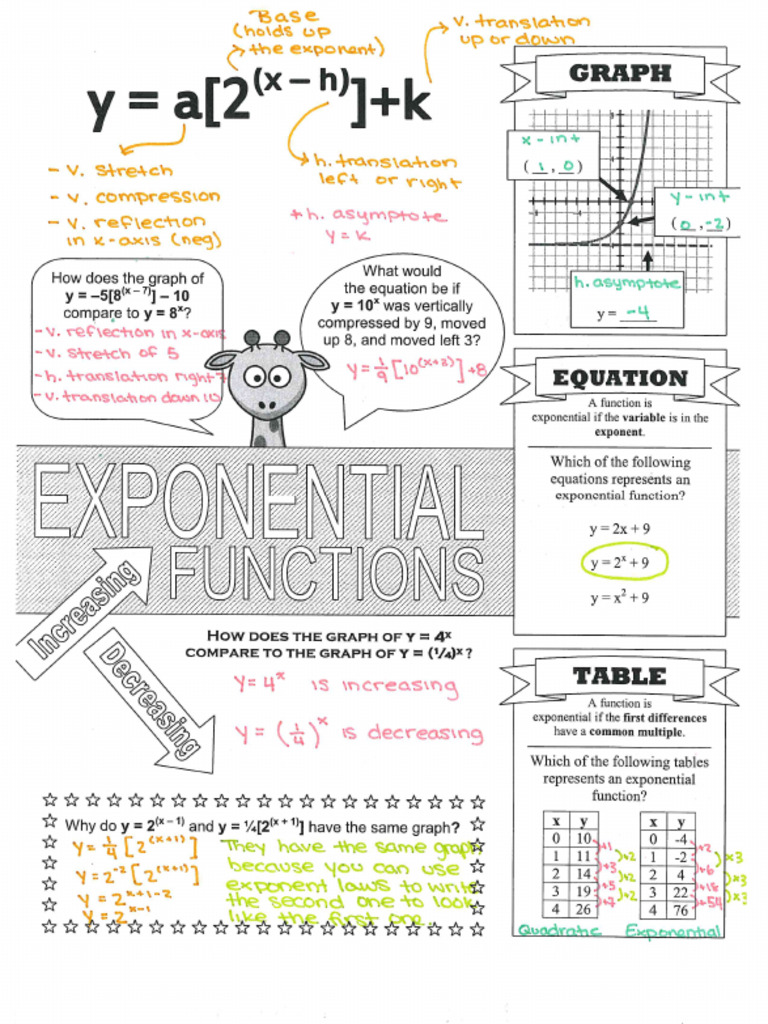 Base
(holds up
the exponent)
v. translation
up or down
y = a[2^(x – h)]+k
- v. stretch
- v. compression
- v. reflection
in x-axis (neg)
h. translation
left or right
+ h. asymptote
y = k
How does the graph of
y = –5[8^(x – 7)] – 10
compare to y = 8^x?
- v. reflection in x-axis
- v. stretch of 5
- h. translation right 7
- v. translation down 10
What would
the equation be if
y = 10^x was vertically
compressed by 9, moved
up 8, and moved left 3?
y = 1/9 [10^(x+3)] +8
GRAPH
x-int
(1, 0)
y-int
(0, -2)
h. asymptote
y = -4
EQUATION
A function is
exponential if the variable is in the
exponent.
Which of the following
equations represents an
exponential function?
y = 2x + 9
y = 2^x + 9
y = x² + 9
EXPONENTIAL
FUNCTIONS
Increasing
Decreasing
HOW DOES THE GRAPH OF Y = 4^x
COMPARE TO THE GRAPH OF Y = (¼)^x?
y = 4^x is increasing
y = (1/4)^x is decreasing
TABLE
A function is
exponential if the first differences
have a common multiple.
Which of the following tables
represents an exponential
function?
x y
0 10
1 11
2 14
3 19
4 26
+1
+3
+5
+7
+2
+2
+2
Quadratic
x y
0 -4
1 -2
2 4
3 22
4 76
+2
+6
+18
+54
x3
x3
x3
Exponential
Why do y = 2^(x – 1) and y = ¼[2^(x + 1)] have the same graph?
y = 1/4 [2^(x+1)]
y = 2^-2 [2^(x+1)]
y = 2^x+1-2
y = 2^x-1
They have the same graph
because you can use
exponent laws to write
the second one to look
like the first one.